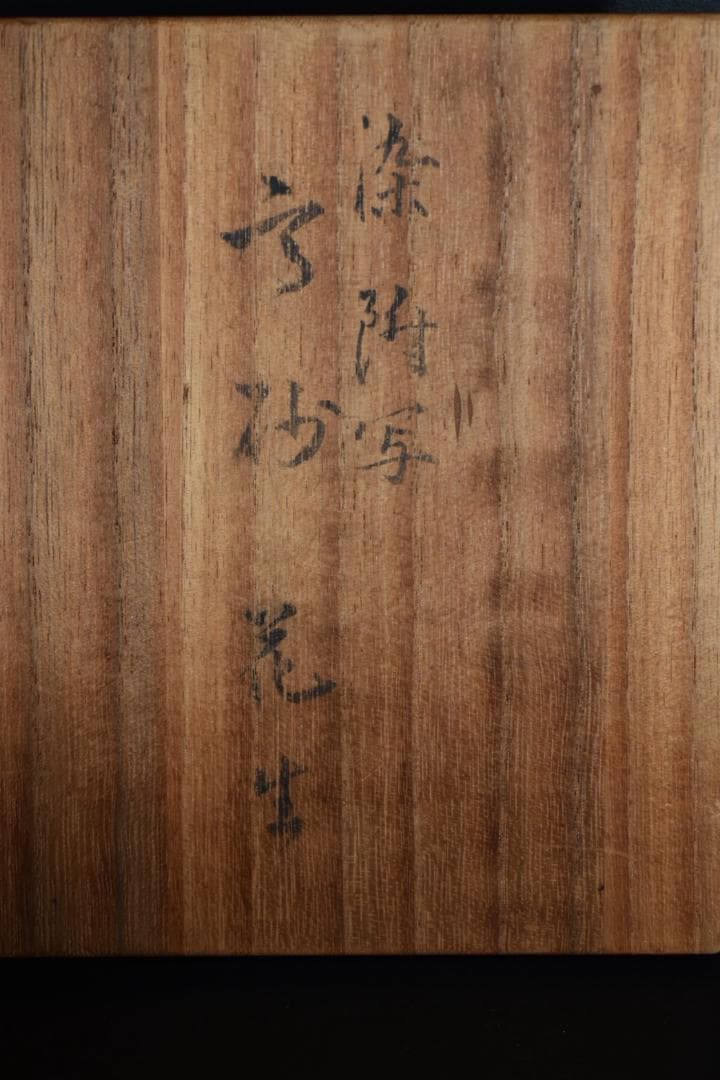 染附写
高砂花生